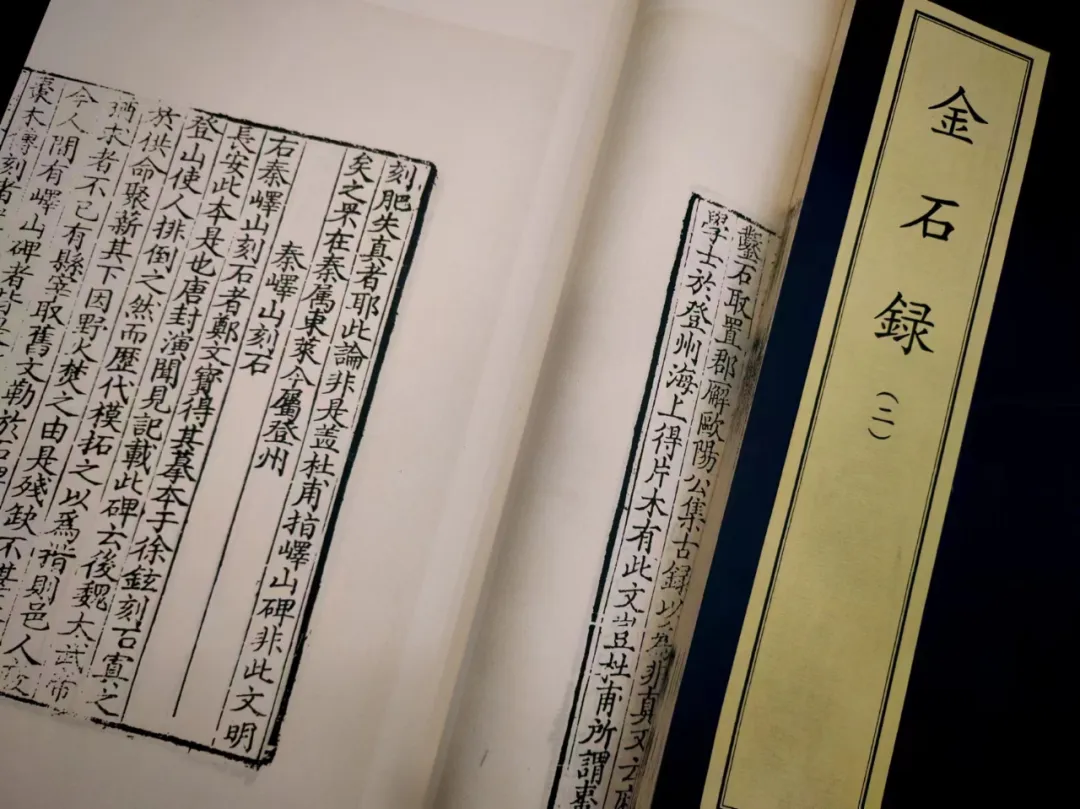 金石録
（二）
鑿石取置郡廨歐陽公集古録以為非真又云
學士於登州海上得片木有此文豈杜甫所謂棗
刻肥失真者耶此論非是蓋杜甫指嶧山碑非此文明
矣之罘在秦屬東萊今屬登州
秦嶧山刻石
右秦嶧山刻石者鄭文寶得其摹本于徐鉉刻石寘之
長安此本是也唐封演聞見記載此碑云後魏太武帝
登山使人排倒之然而歷代模拓之以為楷則邑人疲
於供命聚薪其下因野火焚之由是殘缺不堪
求者不已有縣宰取舊文勒於石碑
今人間有嶧山碑者皆
棗木傳刻者